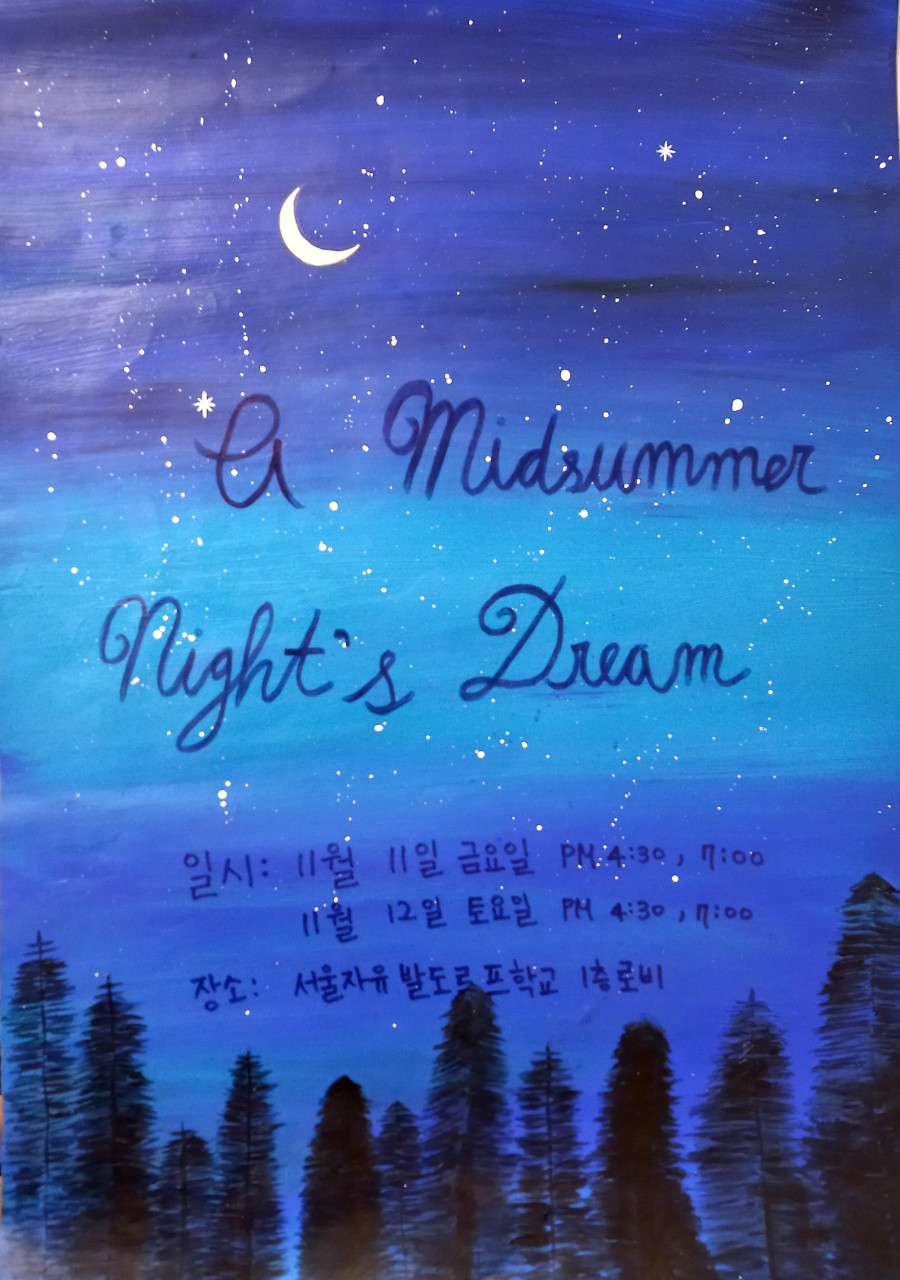 A Midsummer
Night's Dream
일시: 11월 11일 금요일 PM 4:30, 7:00
11월 12일 토요일 PM 4:30, 7:00
장소: 서울자유발도르프학교 1층로비